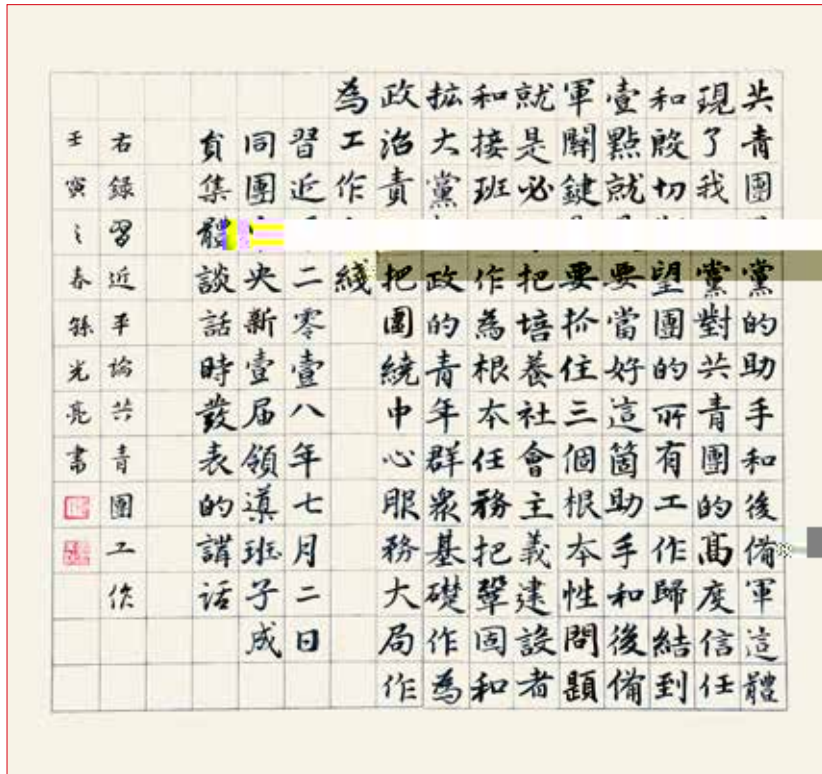 共青團黨的助手和後備軍這體
現了我黨對共青團的高度信任
和殷切望團的所有工作歸結到
壹點就要當好這箇助手和後備
軍關鍵要抓住三個根本性問題
就是必把培養社會主義建設者
和接班作為根本任務把鞏固和
拡大黨政的青年群衆基礎作為
政治責把圍繞中心服務大局作
為工作綫
習近平二零壹八年七月二日
同團中央新壹届領導班子成
員集體談話時發表的講話
右録習近平論共青團工作
壬寅之春孫光亮書